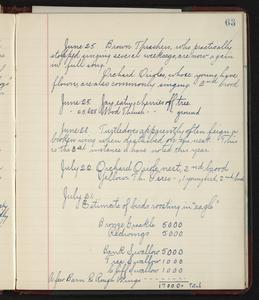 63
June 25 Brown Thrashers, who practically
stopped singing several weeks ago, are now again
in full song.
Orchard Orioles, whose young have
flown, are also commonly singing. 2nd brood
June 25 Jay eats cherries off tree
Wood Thrush " " ground
June 28 Turtledoves apparently often feign a
broken wing when disturbed on nest. This
is the 3rd instance I have noted this year.
July 22 Orchard Oriole nest, 2nd brood
Yellow Th. Vireo - 1 young fed, 2nd brood
July 31
Estimate of birds roosting in "eagle"
Bronze Grackle 5000
Redwings 5000
Bank Swallow 5000
Tree Swallow 1000
Cliff Swallow 1000
A few Barn & Rough Wings
17000+ Total